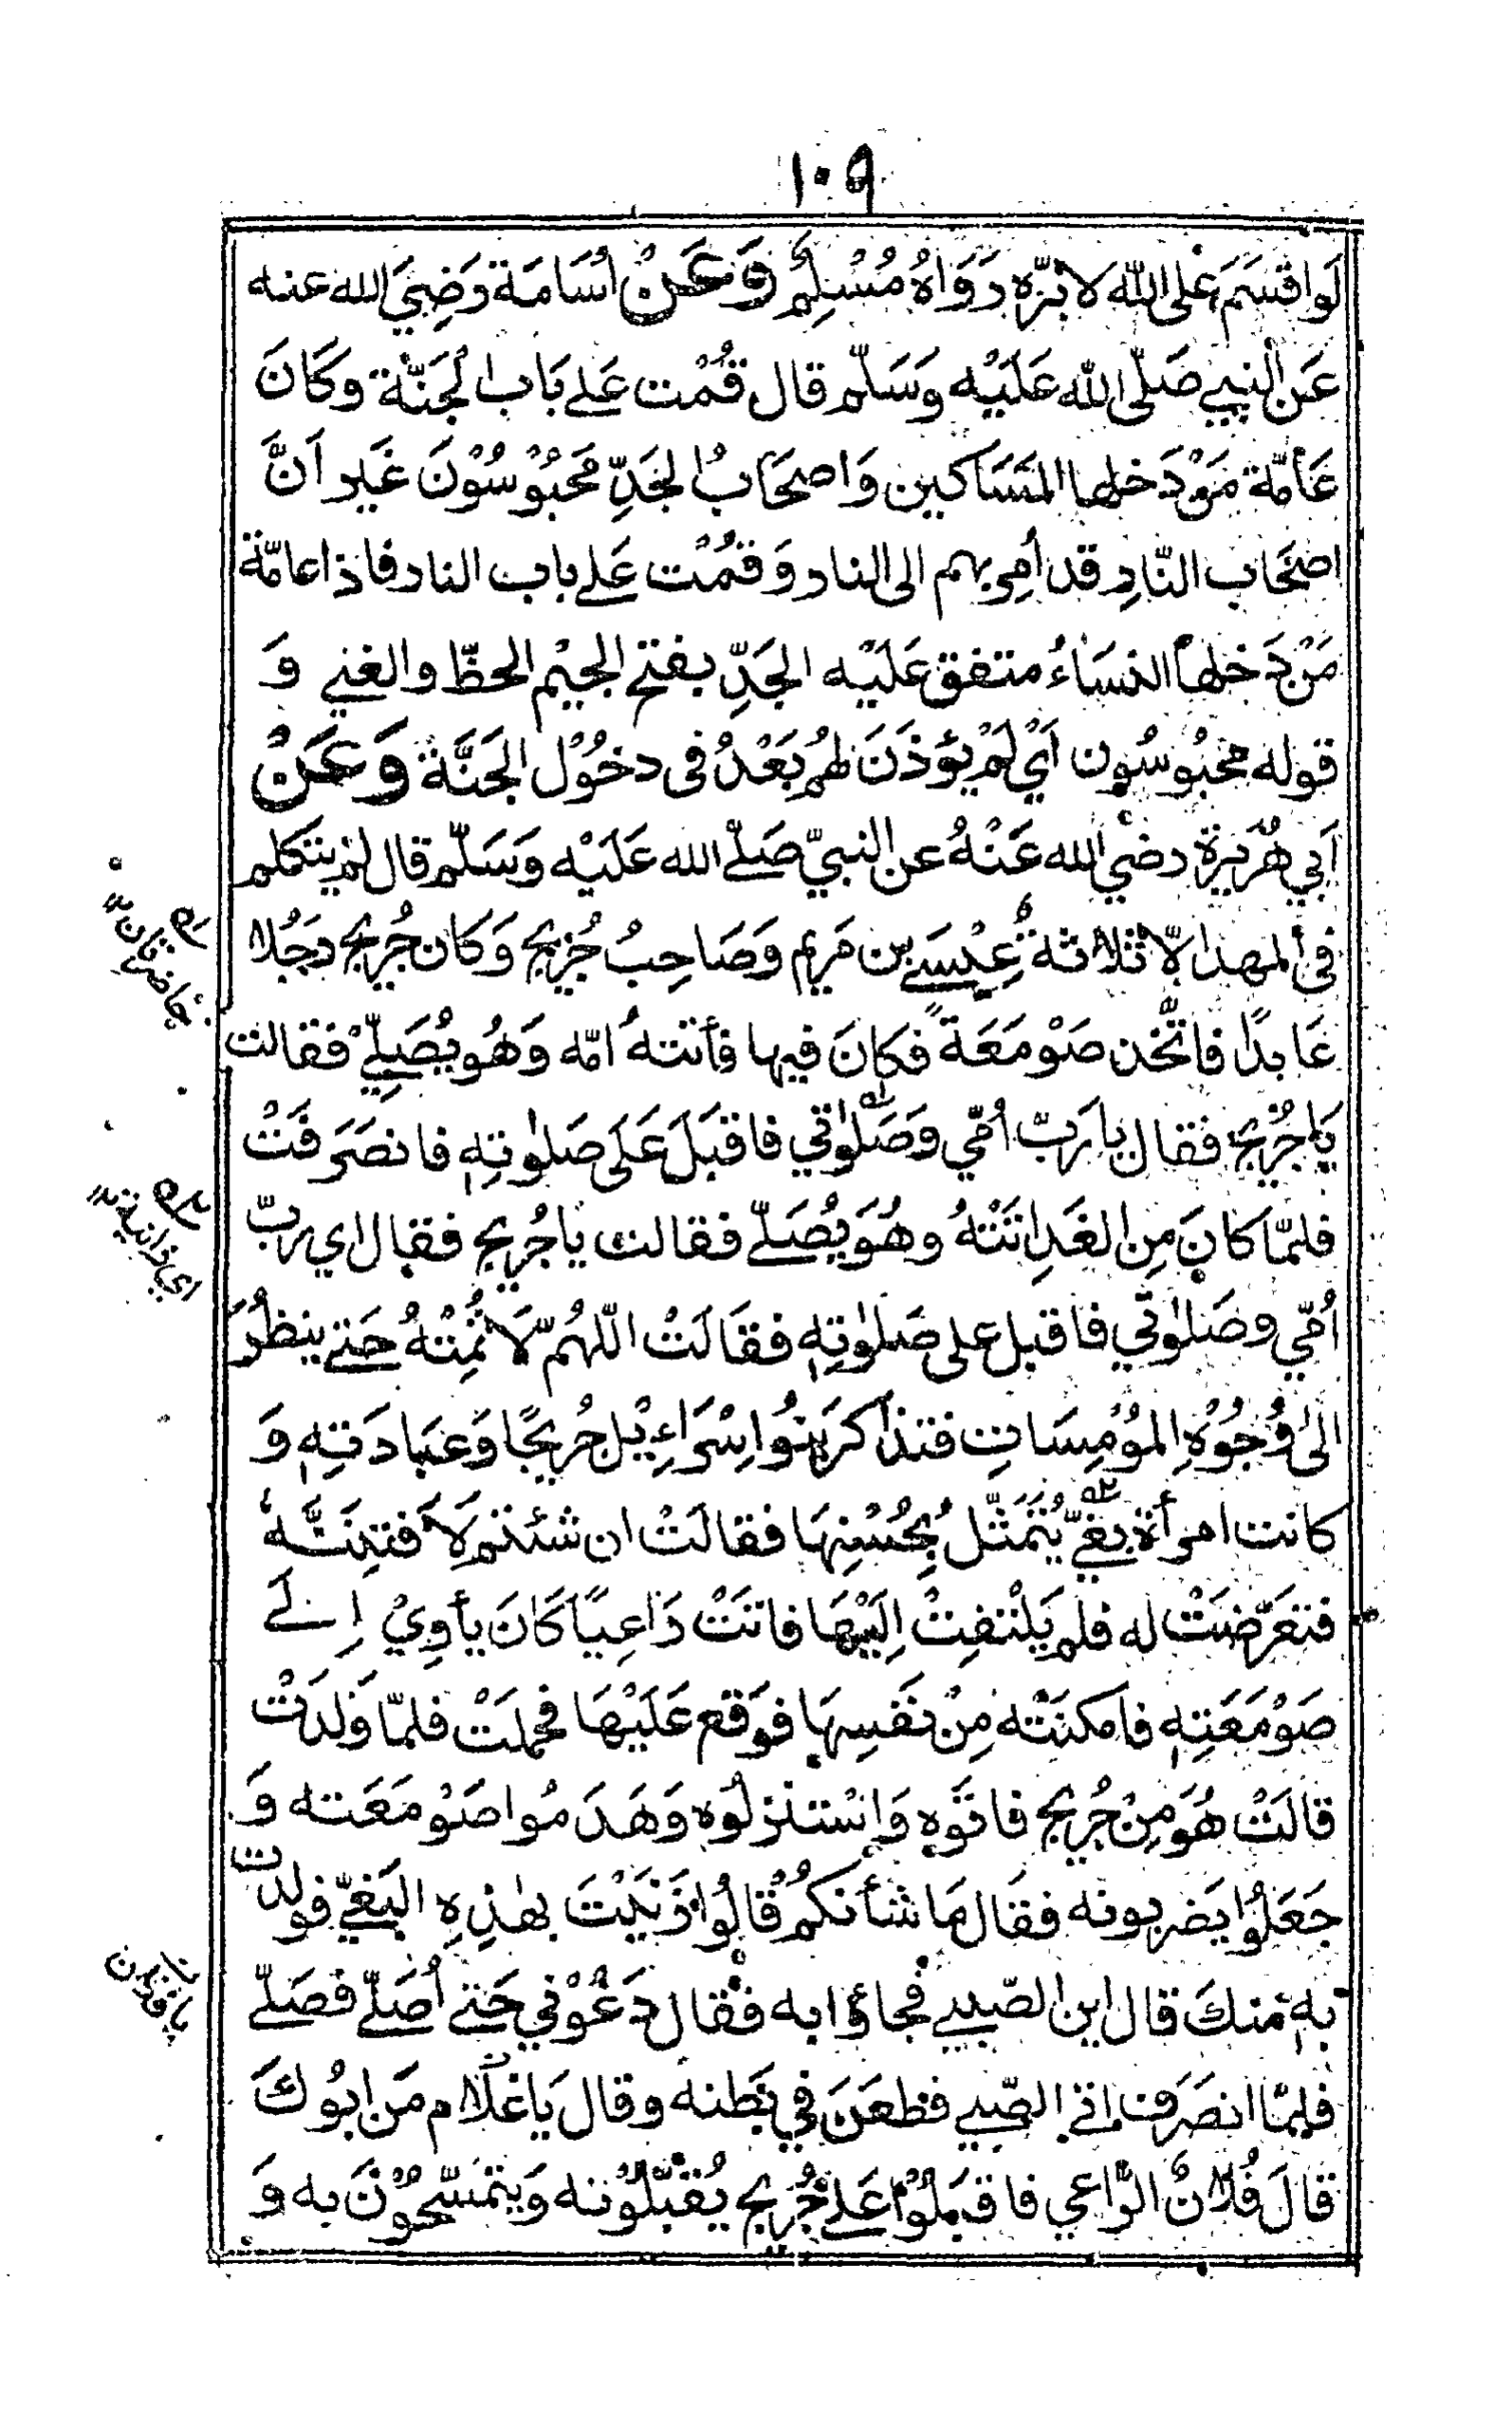 ١٠٩
لَوا قْسَمَ عَلى اللّٰه لا بَرَّه رَوَاهُ مُسْلِمٌ وَعَنْ اُسَامَة رَضِيَ الله عنه
عَن النبي صَلّى الله عَلَيْه وَسَلّم قال قُمْت عَلى بَاب الجَنَّة وكَانَ
عَامّة مَنْ دَخلها المَسَاكين وَاصحَابُ الجَدِّ مَحْبُوْسُوْنَ غَير اَنَّ
اصحَاب النَّارِ قد اُمِر بهم الى النار وَقمُت عَلى باب النار فاذا عامّة
مَنْ دَخلهَا النسَاءُ متفق عَلَيْه الجَدِّ بفتح الجيْم الحظّ والغني وَ
قوله محبُوسُون اَيْ لَمْ يُؤذَنَ لهُم بَعْدُ فى دخُوْل الجَنَّة وَعَنْ
اَبي هُرَيرَة رضي الله عَنْهُ عن النبيّ صَلّى الله عَلَيْه وَسَلّم قال لم يتكلم
فى المهد الّا ثلاثة عِيْسَى بن مَريم وَصَاحِبُ جُرَيج وَكان جُرَيج رَجُلا
عَابدًا فاتّخذ صَوْمَعَة فكانَ فيها فأتتهُ امّه وَهُو يُصَلِيّ فقالت
يَا جُرَيج فقال يا رَبّ اُمّي وَصَلٰوتي فاقبَلَ عَلَى صَلٰوتِهٖ فانصَرَفَتْ
فلمّا كانَ مِن الغَدِ اتَتْهُ وهُوَ يُصَلّى فقالت يا جُرَيج فقال اي رَبّ
اُمّي وصَلٰوتي فاقبل على صَلٰوتِهٖ فقَالَتْ اللّهُمّ لَا تُمِتْهُ حَتى ينظُرَ
الىٰ وُجُوْهِ المُوْمِسَاتِ فتذاكرَ بَنُوا اِسْرَاءِيْل جُرَيجًا وَعبَادَتِهٖ وَ
كانت امرأة بغيّ يُتَمَثّلُ بِحُسْنِهَا فقالَتْ ان شئتم لَا فتِنَنَّهُ
فتعَرّضَتْ له فلم يَلْتفِتْ اِلَيْهَا فاتَتْ رَاعِيًا كَانَ يأوِيْ اِلَى
صَوْمَعَتِهٖ فامكنَتْه مِنْ نَفسِهَا فوَقع عَلَيْهَا فحملَتْ فلمّا وَلدَتْ
قالَتْ هُوَ مِنْ جُرَيج فاتَوْه وَاسْتنزلُوه وَهَدَمُوا صَوْمَعَته وَ
جَعَلُوا يَضربونه فقَال مَا شأنكُمْ قَالُوا زَنَيْتَ بهٰذِهِ البَغيّ فولدت
بهٖ منكَ قال اين الصّبي فجاؤا به فقال دَعُوْني حَتى اُصَلّي فصَلّى
فلمّا انصَرَف اتى الصّبي فطعَنَ فِي بَطنه وقال يَا غلَام مَن ابُوكَ
قالَ فُلَانٌ الرَّاعي فاقبَلُوْا عَلى جُرَيج يُقبّلُوْنه وَيتمَسّحُوْنَ به وَ